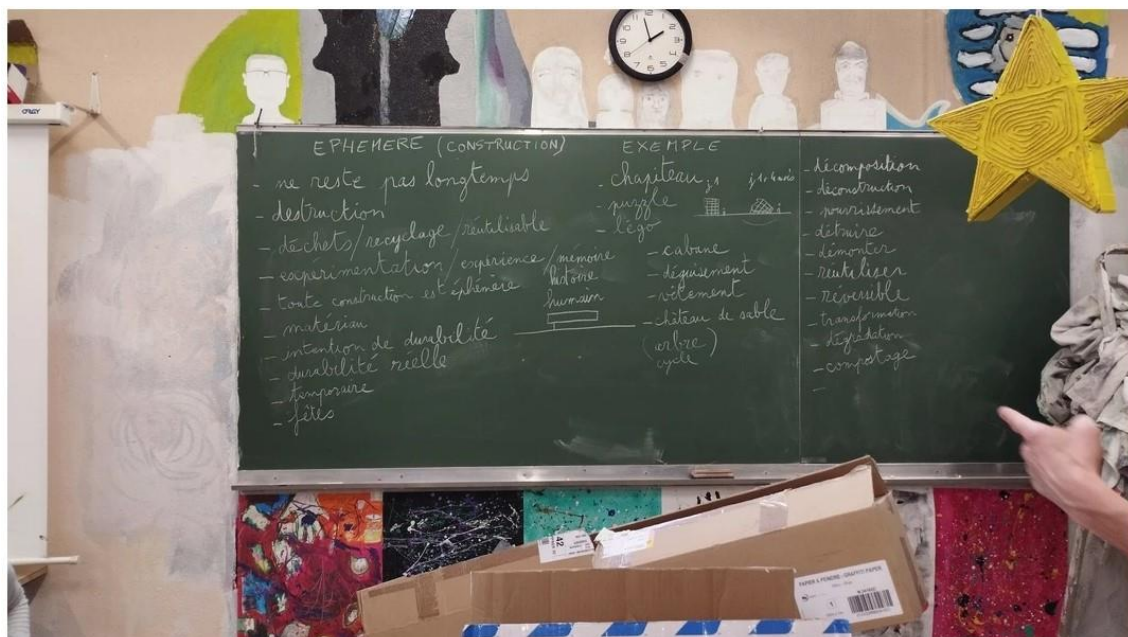 EPHEMERE (CONSTRUCTION)
- ne reste pas longtemps
- destruction
- déchets/recyclage/réutilisable
- expérimentation/expérience/mémoire
histoire
humain
- toute construction est éphémère
- matériau
- intention de durabilité
- durabilité réelle
- temporaire
- fêtes
EXEMPLE
- chapiteau
- puzzle
- légo
j 1
- cabane
- déguisement
- vêtement
- château de sable
(arbre)
cycle
- décomposition
- déconstruction
- pourrissement
- détruire
- démonter
- réutiliser
- réversible
- transformation
- dégradation
- compostage
-
42
PAPIER A PEINDRE - GRAFFITI PAPER
1